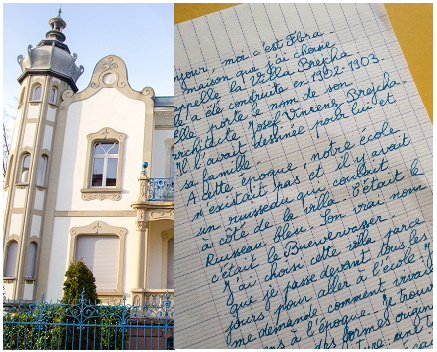 njour, moi c'est Ebra
maison que j'ai choisie
appelle la Villa Brejcha
a été construite en 1902-1903.
Elle porte le nom de son
architecte Josef Vinzenz Brejcha.
Il l'avait dessinée pour lui et
sa famille.
A cette époque, notre école
n'existait pas et il y avait
un ruisseau qui coulait
à côté de la villa. C'était le
Ruisseau bleu. Son vrai nom
c'était le
J'ai choisi cette villa parce
que je passe devant tous les
jours pour aller à l'école. J
me demande comment vivai
ens à l'époque. Je trouv
des formes origin